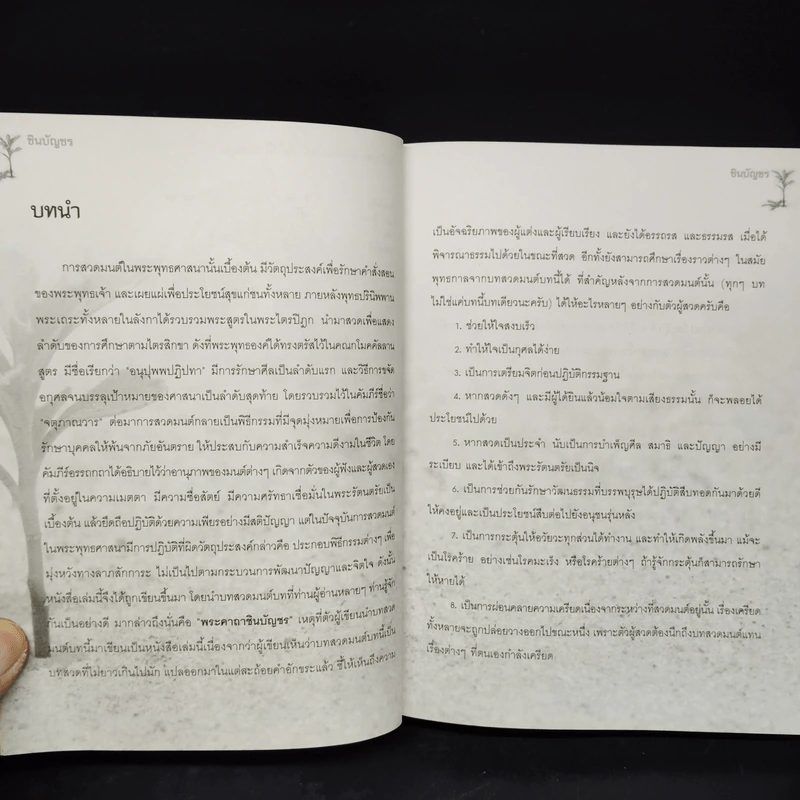 ชินบัญชร
บทนำ
การสวดมนต์ในพระพุทธศาสนานั้นเบื้องต้น มีวัตถุประสงค์เพื่อรักษาคำสั่งสอน
ของพระพุทธเจ้า และเผยแผ่เพื่อประโยชน์สุขแก่ชนทั้งหลาย ภายหลังพุทธปรินิพพาน
พระเถระทั้งหลายในลังกาได้รวบรวมพระสูตรในพระไตรปิฎก นำมาสวดเพื่อแสดง
ลำดับของการศึกษาตามไตรสิกขา ดังที่พระพุทธองค์ได้ทรงตรัสไว้ในคณกโมคคัลลาน
สูตร มีชื่อเรียกว่า "อนุปุพพปฏิปทา" มีการรักษาศีลเป็นลำดับแรก และวิธีการขจัด
อกุศลจนบรรลุเป้าหมายของศาสนาเป็นลำดับสุดท้าย โดยรวบรวมไว้ในคัมภีร์ชื่อว่า
"จตุภาณวาร" ต่อมาการสวดมนต์กลายเป็นพิธีกรรมที่มีจุดมุ่งหมายเพื่อการป้องกัน
รักษาบุคคลให้พ้นจากภัยอันตราย ให้ประสบกับความสำเร็จความดีงามในชีวิต โดย
คัมภีร์อรรถกถาได้อธิบายไว้ว่าอานุภาพของมนต์ต่างๆ เกิดจากตัวของผู้ฟังและผู้สวดเอง
ที่ตั้งอยู่ในความเมตตา มีความซื่อสัตย์ มีความศรัทธาเชื่อมั่นในพระรัตนตรัยเป็น
เบื้องต้น แล้วยึดถือปฏิบัติด้วยความเพียรอย่างมีสติปัญญา แต่ในปัจจุบันการสวดมนต์
ในพระพุทธศาสนามีการปฏิบัติที่ผิดวัตถุประสงค์กล่าวคือ ประกอบพิธีกรรมต่างๆ เพื่อ
มุ่งหวังทางลาภสักการะ ไม่เป็นไปตามกระบวนการพัฒนาปัญญาและจิตใจ ดังนั้น
หนังสือเล่มนี้จึงได้ถูกเขียนขึ้นมา โดยนำบทสวดมนต์บทที่ท่านผู้อ่านหลายๆ ท่านรู้จัก
กันเป็นอย่างดี มากล่าวถึงนั่นคือ "พระคาถาชินบัญชร" เหตุที่ตัวผู้เขียนนำบทสวด
มนต์บทนี้มาเขียนเป็นหนังสือเล่มนี้เนื่องจากว่าผู้เขียนเห็นว่าบทสวดมนต์บทนี้เป็น
บทสวดที่ไม่ยาวเกินไปนัก แปลออกมาในแต่ละถ้อยคำอักขระแล้ว ชี้ให้เห็นถึงความ
ชินบัญชร
เป็นอัจฉริยภาพของผู้แต่งและผู้เรียบเรียง และยังได้อรรถรส และธรรมรส เมื่อได้
พิจารณาธรรมไปด้วยในขณะที่สวด อีกทั้งยังสามารถศึกษาเรื่องราวต่างๆ ในสมัย
พุทธกาลจากบทสวดมนต์บทนี้ได้ ที่สำคัญหลังจากการสวดมนต์นั้น (ทุกๆ บท
ไม่ใช่แค่บทนี้บทเดียวนะครับ) ได้ให้อะไรหลายๆ อย่างกับตัวผู้สวดครับคือ
1. ช่วยให้ใจสงบเร็ว
2. ทำให้ใจเป็นกุศลได้ง่าย
3. เป็นการเตรียมจิตก่อนปฏิบัติกรรมฐาน
4. หากสวดดังๆ และมีผู้ได้ยินแล้วน้อมใจตามเสียงธรรมนั้น ก็จะพลอยได้
ประโยชน์ไปด้วย
5. หากสวดเป็นประจำ นับเป็นการบำเพ็ญศีล สมาธิ และปัญญา อย่างมี
ระเบียบ และได้เข้าถึงพระรัตนตรัยเป็นนิจ
6. เป็นการช่วยกันรักษาวัฒนธรรมที่บรรพบุรุษได้ปฏิบัติสืบทอดกันมาด้วยดี
ให้คงอยู่และเป็นประโยชน์สืบต่อไปยังอนุชนรุ่นหลัง
7. เป็นการกระตุ้นให้อวัยวะทุกส่วนได้ทำงาน และทำให้เกิดพลังขึ้นมา แม้จะ
เป็นโรคร้าย อย่างเช่นโรคมะเร็ง หรือโรคร้ายต่างๆ ถ้ารู้จักกระตุ้นก็สามารถรักษา
ให้หายได้
8. เป็นการผ่อนคลายความเครียดเนื่องจากระหว่างที่สวดมนต์อยู่นั้น เรื่องเครียด
ทั้งหลายจะถูกปล่อยวางออกไปขณะหนึ่ง เพราะตัวผู้สวดต้องนึกถึงบทสวดมนต์แทน
เรื่องต่างๆ ที่ตนเองกำลังเครียด